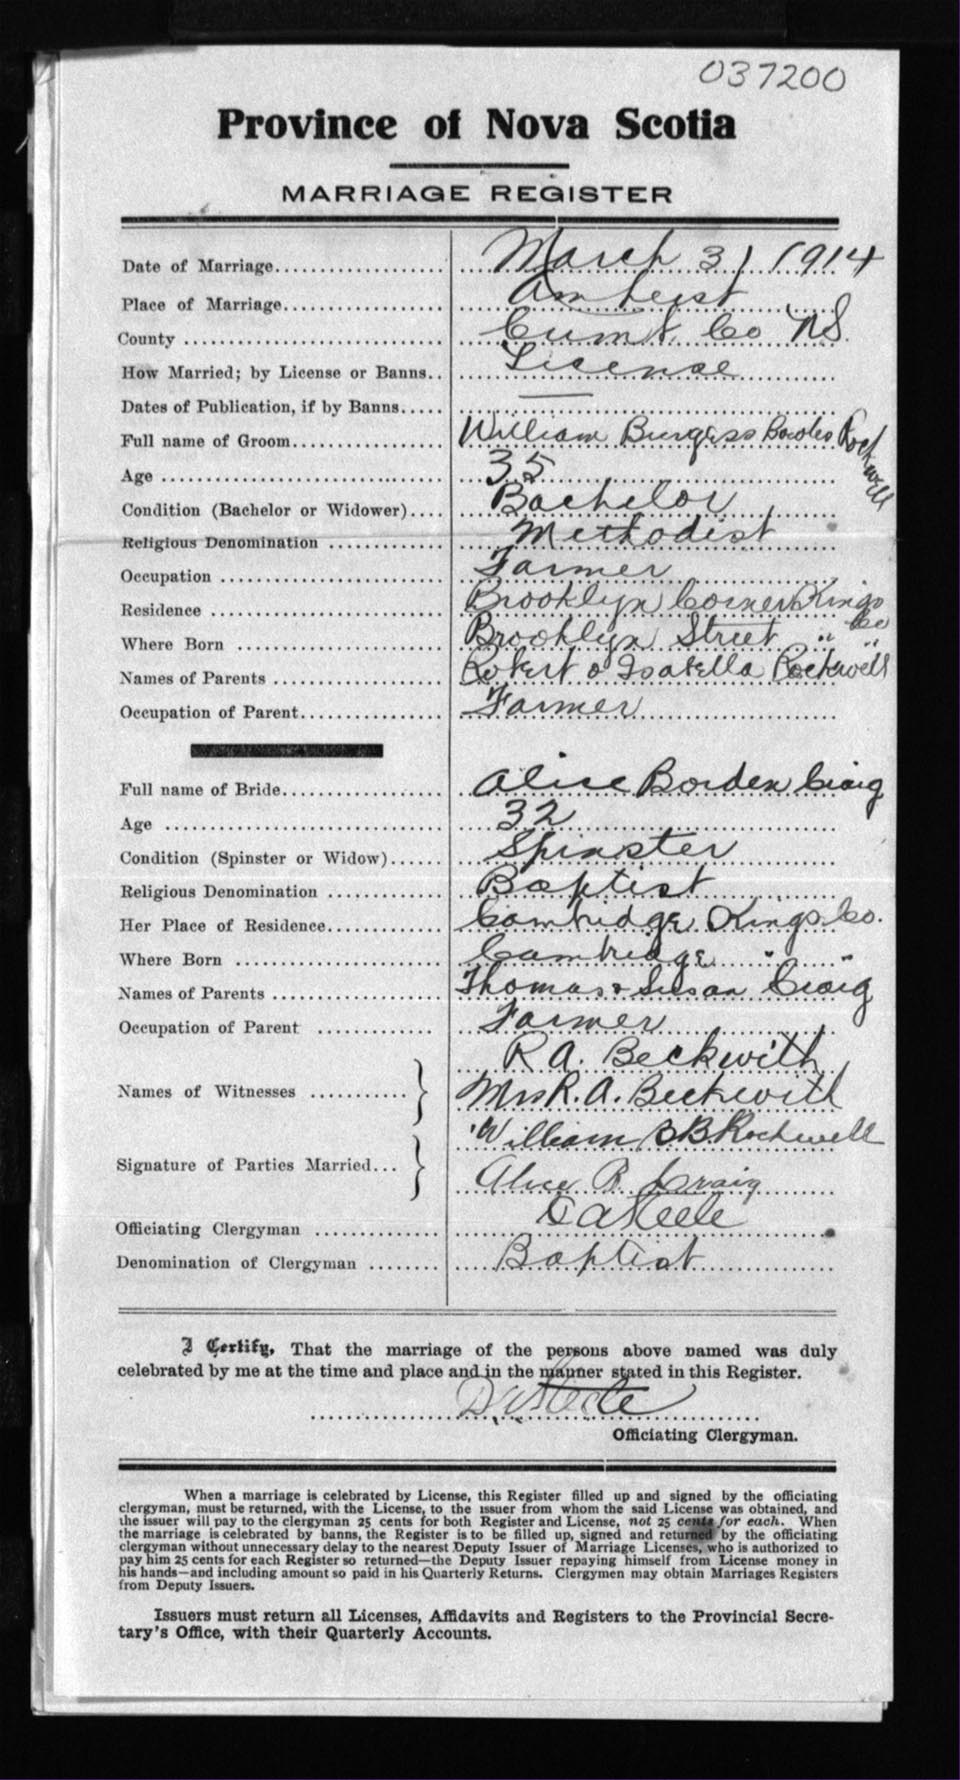 037200
Province of Nova Scotia
MARRIAGE REGISTER
Date of Marriage.................... March 31 1914
Place of Marriage................... Amherst
County .............................. Cumb. Co NS.
How Married; by License or Banns.. License
Dates of Publication, if by Banns..... —
Full name of Groom.................. William Burgess Bowles Rockwell
Age ................................. 35
Condition (Bachelor or Widower).... Bachelor
Religious Denomination .............. Methodist
Occupation .......................... Farmer
Residence ........................... Brooklyn Corner Kings Co
Where Born ......................... Brooklyn Street " "
Names of Parents .................... Robert & Isabella Rockwell
Occupation of Parent................. Farmer
Full name of Bride................... Alice Borden Craig
Age ................................. 32
Condition (Spinster or Widow)...... Spinster
Religious Denomination .............. Baptist
Her Place of Residence.............. Cambridge Kings Co.
Where Born ......................... Cambridge " "
Names of Parents .................... Thomas & Susan Craig
Occupation of Parent .............. Farmer
R A. Beckwith
Names of Witnesses ........... } Mrs R. A. Beckwith
William B B Rockwell
Signature of Parties Married... } Alice B. Craig
Officiating Clergyman ............... D A Steele
Denomination of Clergyman ........ Baptist
I Certify, That the marriage of the persons above named was duly
celebrated by me at the time and place and in the manner stated in this Register.
D A Steele
Officiating Clergyman.
When a marriage is celebrated by License, this Register filled up and signed by the officiating
clergyman, must be returned, with the License, to the issuer from whom the said License was obtained, and
the issuer will pay to the clergyman 25 cents for both Register and License, not 25 cents for each. When
the marriage is celebrated by banns, the Register is to be filled up, signed and returned by the officiating
clergyman without unnecessary delay to the nearest Deputy Issuer of Marriage Licenses, who is authorized to
pay him 25 cents for each Register so returned—the Deputy Issuer repaying himself from License money in
his hands—and including amount so paid in his Quarterly Returns. Clergymen may obtain Marriages Registers
from Deputy Issuers.
Issuers must return all Licenses, Affidavits and Registers to the Provincial Secre-
tary's Office, with their Quarterly Accounts.